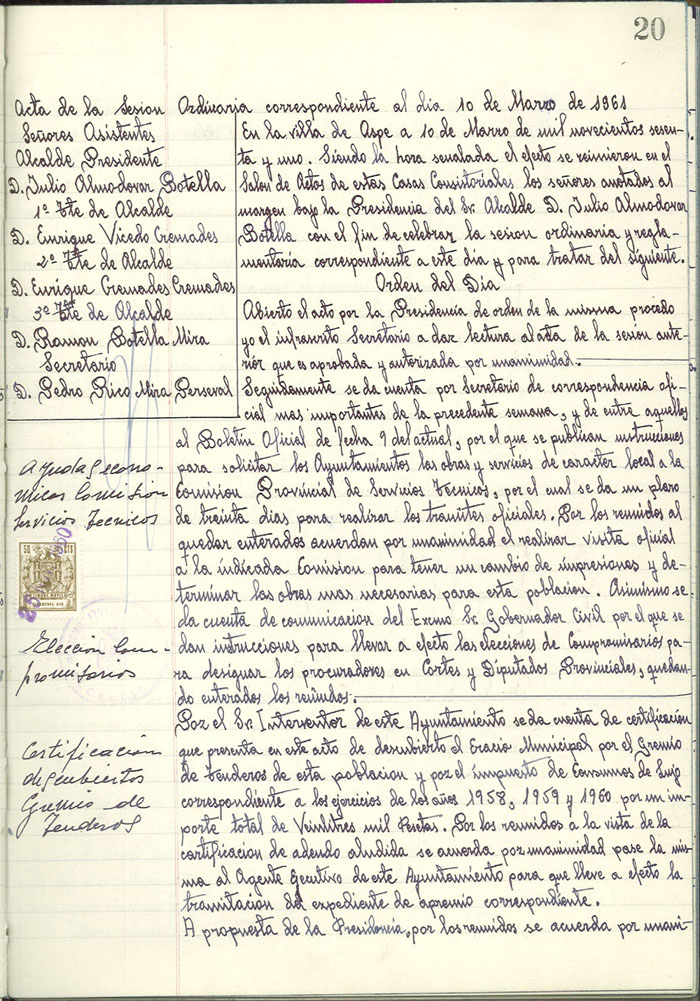 20
Acta de la Sesion Ordinaria correspondiente al dia 10 de Marzo de 1961
Señores Asistentes
Alcalde Presidente
D. Julio Almodovar Botella
1º Tte de Alcalde
D. Enrique Vicedo Cremades
2º Tte de Alcalde
D. Enrique Cremades Cremades
3º Tte de Alcalde
D. Ramon Botella Mira
Secretario
D. Pedro Rico Mira Perseval
En la villa de Aspe a 10 de Marzo de mil novecientos sesen-
ta y uno. Siendo la hora senalada el efecto se reunieron en el
Salon de Actos de estas Casas Consistoriales los señores anotados al
margen bajo la Presidencia del Sr. Alcalde D. Julio Almodovar
Botella con el fin de celebrar la sesion ordinaria y regla-
mentaria correspondiente a este dia y para tratar del siguiente.
Orden del Dia
Abierto el acto por la Presidencia de orden de la misma procedo
yo el infrascrito Secretario a dar lectura al acta de la sesion ante-
rior que es aprobada y autorizada por unanimidad.
Seguidamente se da cuenta por Secretario de correspondencia ofi-
cial mas importantes de la precedente semana, y de entre aquellos
al Boletin Oficial de fecha 9 del actual, por el que se publican instrucciones
para solicitar los Ayuntamientos las obras y servicios de caracter local a la
Comision Provincial de Servicios Tecnicos, por el cual se da un plazo
de treinta dias para realizar los tramites oficiales. Por los reunidos al
quedar enterados acuerdan por unanimidad el realizar visita oficial
a la indicada Comision para tener un cambio de impresiones y de-
terminar las obras mas necesarias para esta poblacion. Asimismo se
da cuenta de comunicacion del Excmo Sr. Gobernador Civil por el que se
dan instrucciones para llevar a efecto las elecciones de Compromisarios pa-
ra designar los procuradores en Cortes y Diputados Provinciales, quedan-
do enterados los reunidos.
Por el Sr. Interventor de este Ayuntamiento se da cuenta de certificación
que presenta en este acto de descubierto al Eracio Municipal por el Gremio
de Tenderos de esta poblacion y por el impuesto de Consumos de Lujo
correspondiente a los ejercicios de los años 1958, 1959 y 1960 por un im-
porte total de Veintitres mil Pesetas. Por los reunidos a la vista de la
certificacion de adeudo aludida se acuerda por unanimidad pase la mis-
ma al Agente Ejecutivo de este Ayuntamiento para que lleve a efecto la
tramitacion del expediente de apremio correspondiente.
A propuesta de la Presidencia, por los reunidos se acuerda por unani-
Ayudas econo-
micas Comision
Servicios Tecnicos
50 CTS
Eleccion Com-
promisarios
Certificacion
descubiertos
Gremio de
Tenderos